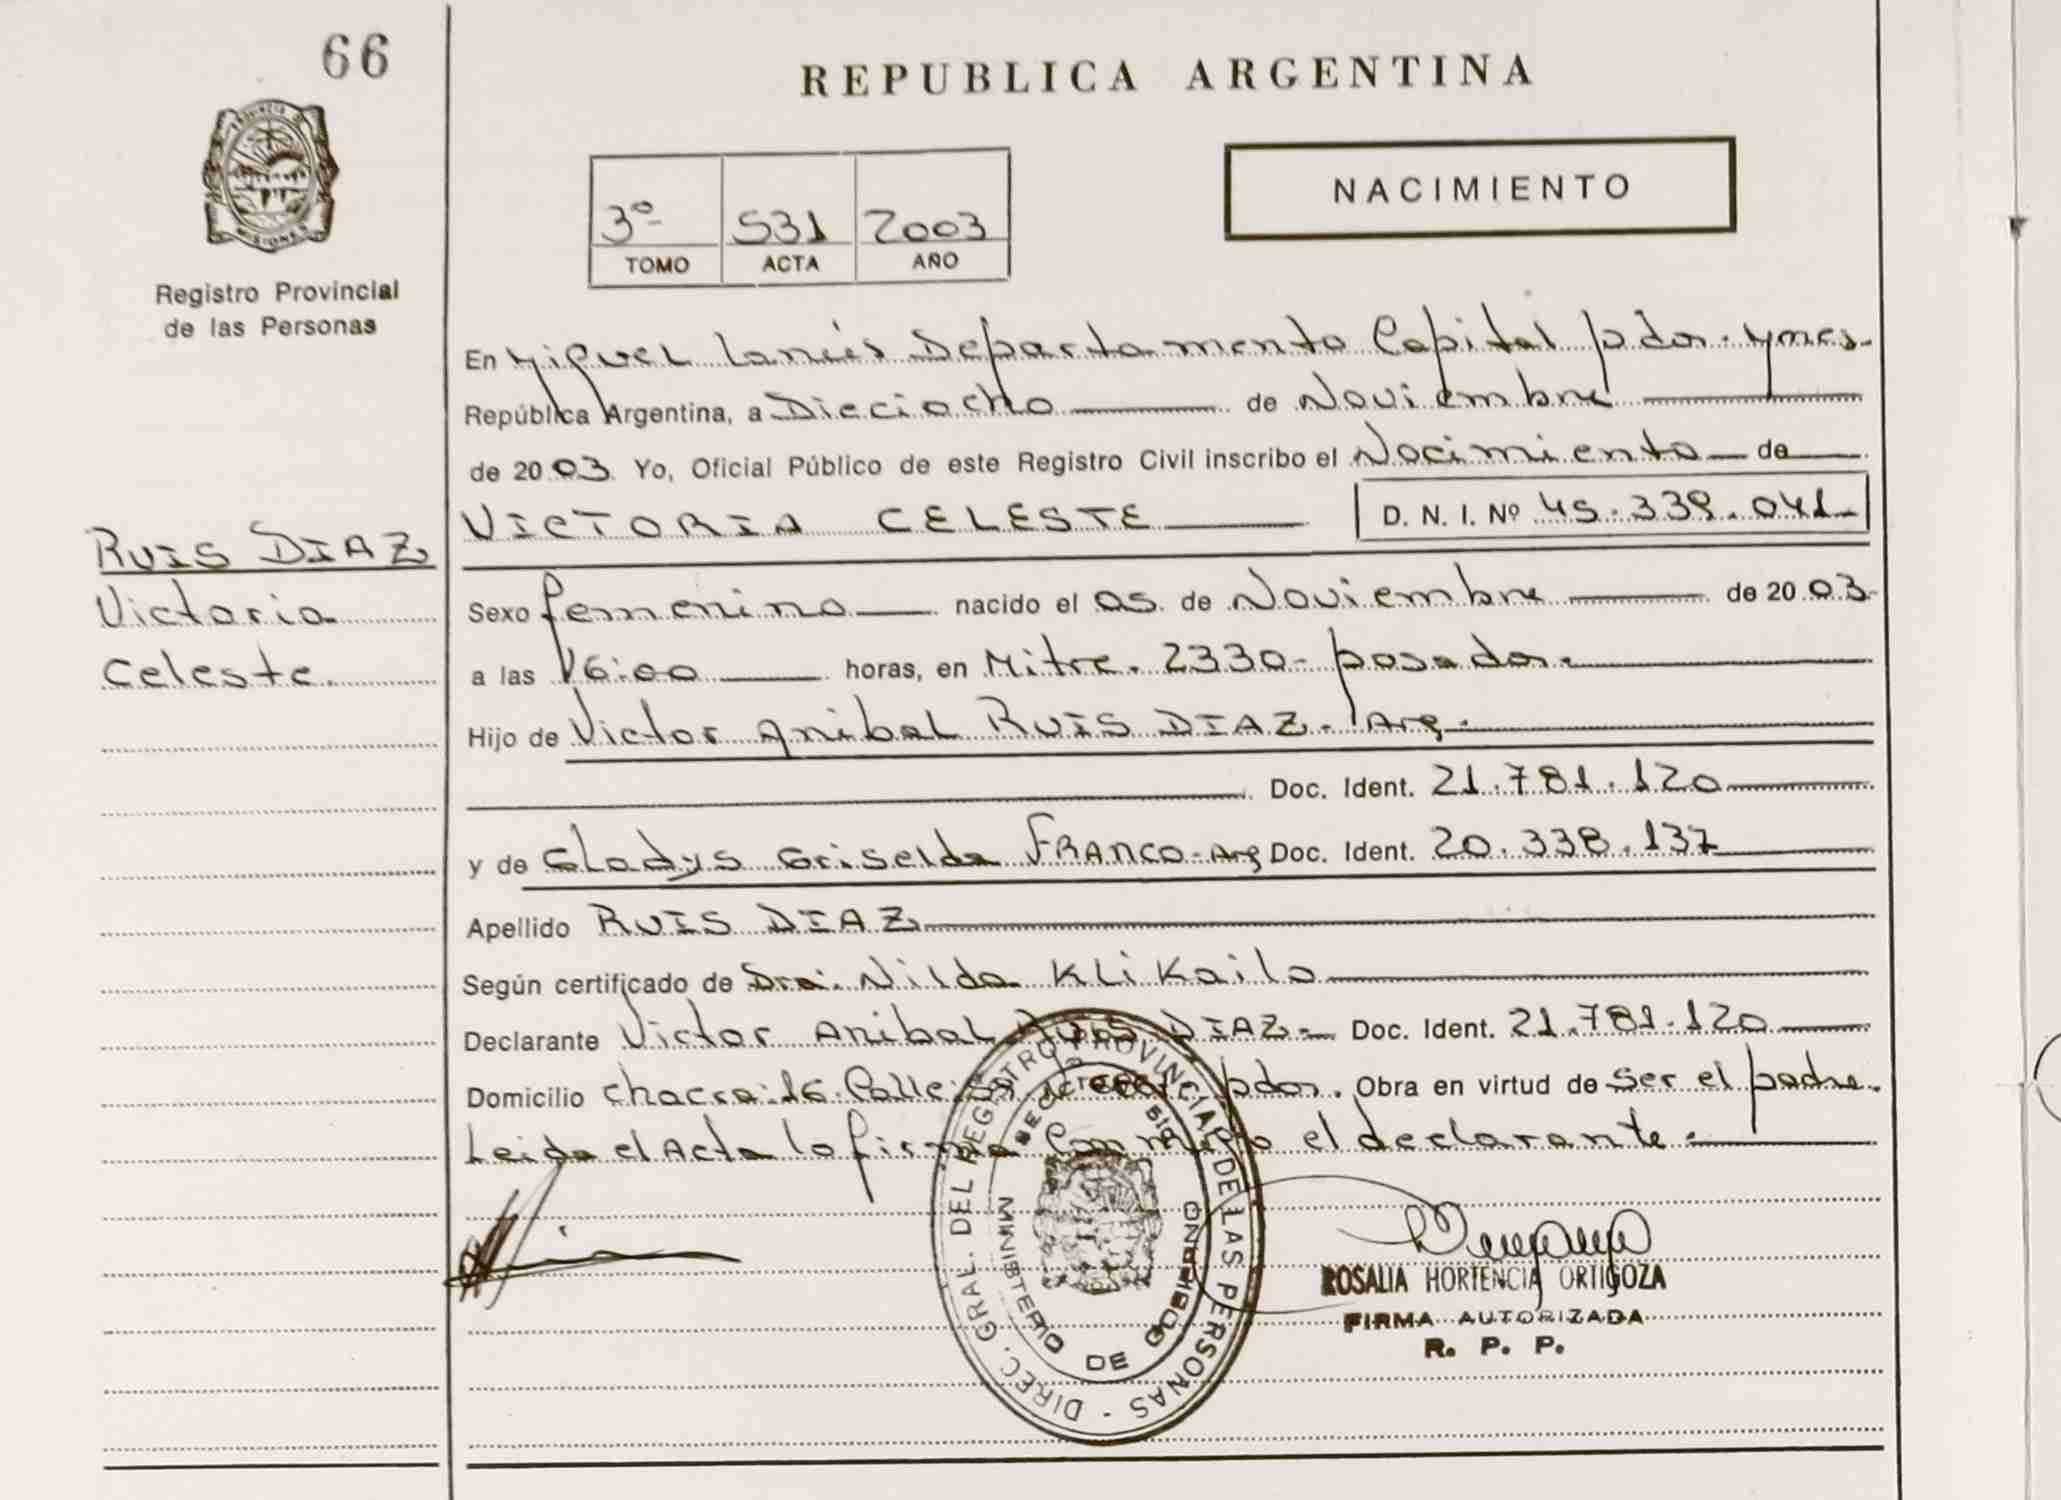 66
REPUBLICA ARGENTINA
NACIMIENTO
3º 531 2003
TOMO ACTA AÑO
MISIONES
Registro Provincial
de las Personas
En Miguel Lanús Departamento Capital pdas. ymes.
República Argentina, a Dieciocho de Noviembre
de 2003. Yo, Oficial Público de este Registro Civil inscribo el Nacimiento de
VICTORIA CELESTE D. N. I. Nº 45.339.041
RUIS DIAZ
Victoria
Celeste.
Sexo femenino nacido el 05 de Noviembre de 2003
a las 16:00 horas, en Mitre. 2330- posadas.
Hijo de Victor Anibal RUIS DIAZ. Arg.
Doc. Ident. 21.781.120
y de Gladys Griselda FRANCO-Arg Doc. Ident. 20.338.137
Apellido RUIS DIAZ
Según certificado de Dra. Nilda Klikailo
Declarante Victor Anibal RUIS DIAZ- Doc. Ident. 21.781.120
Domicilio chacra.16. Calle pdas. Obra en virtud de ser el padre.
Leida el Acta lo firma Conmigo el declarante.
DIREC. GRAL. DEL REGISTRO PROVINCIAL DE LAS PERSONAS -
MINISTERIO DE GOBIERNO
ROSALIA HORTENCIA ORTIGOZA
FIRMA AUTORIZADA
R. P. P.